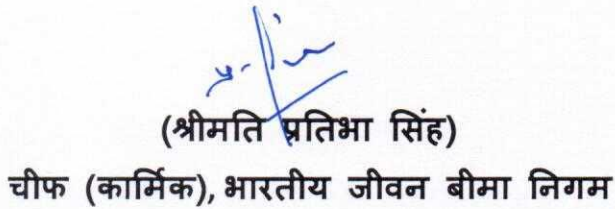 (श्रीमति प्रतिभा सिंह)
चीफ (कार्मिक), भारतीय जीवन बीमा निगम